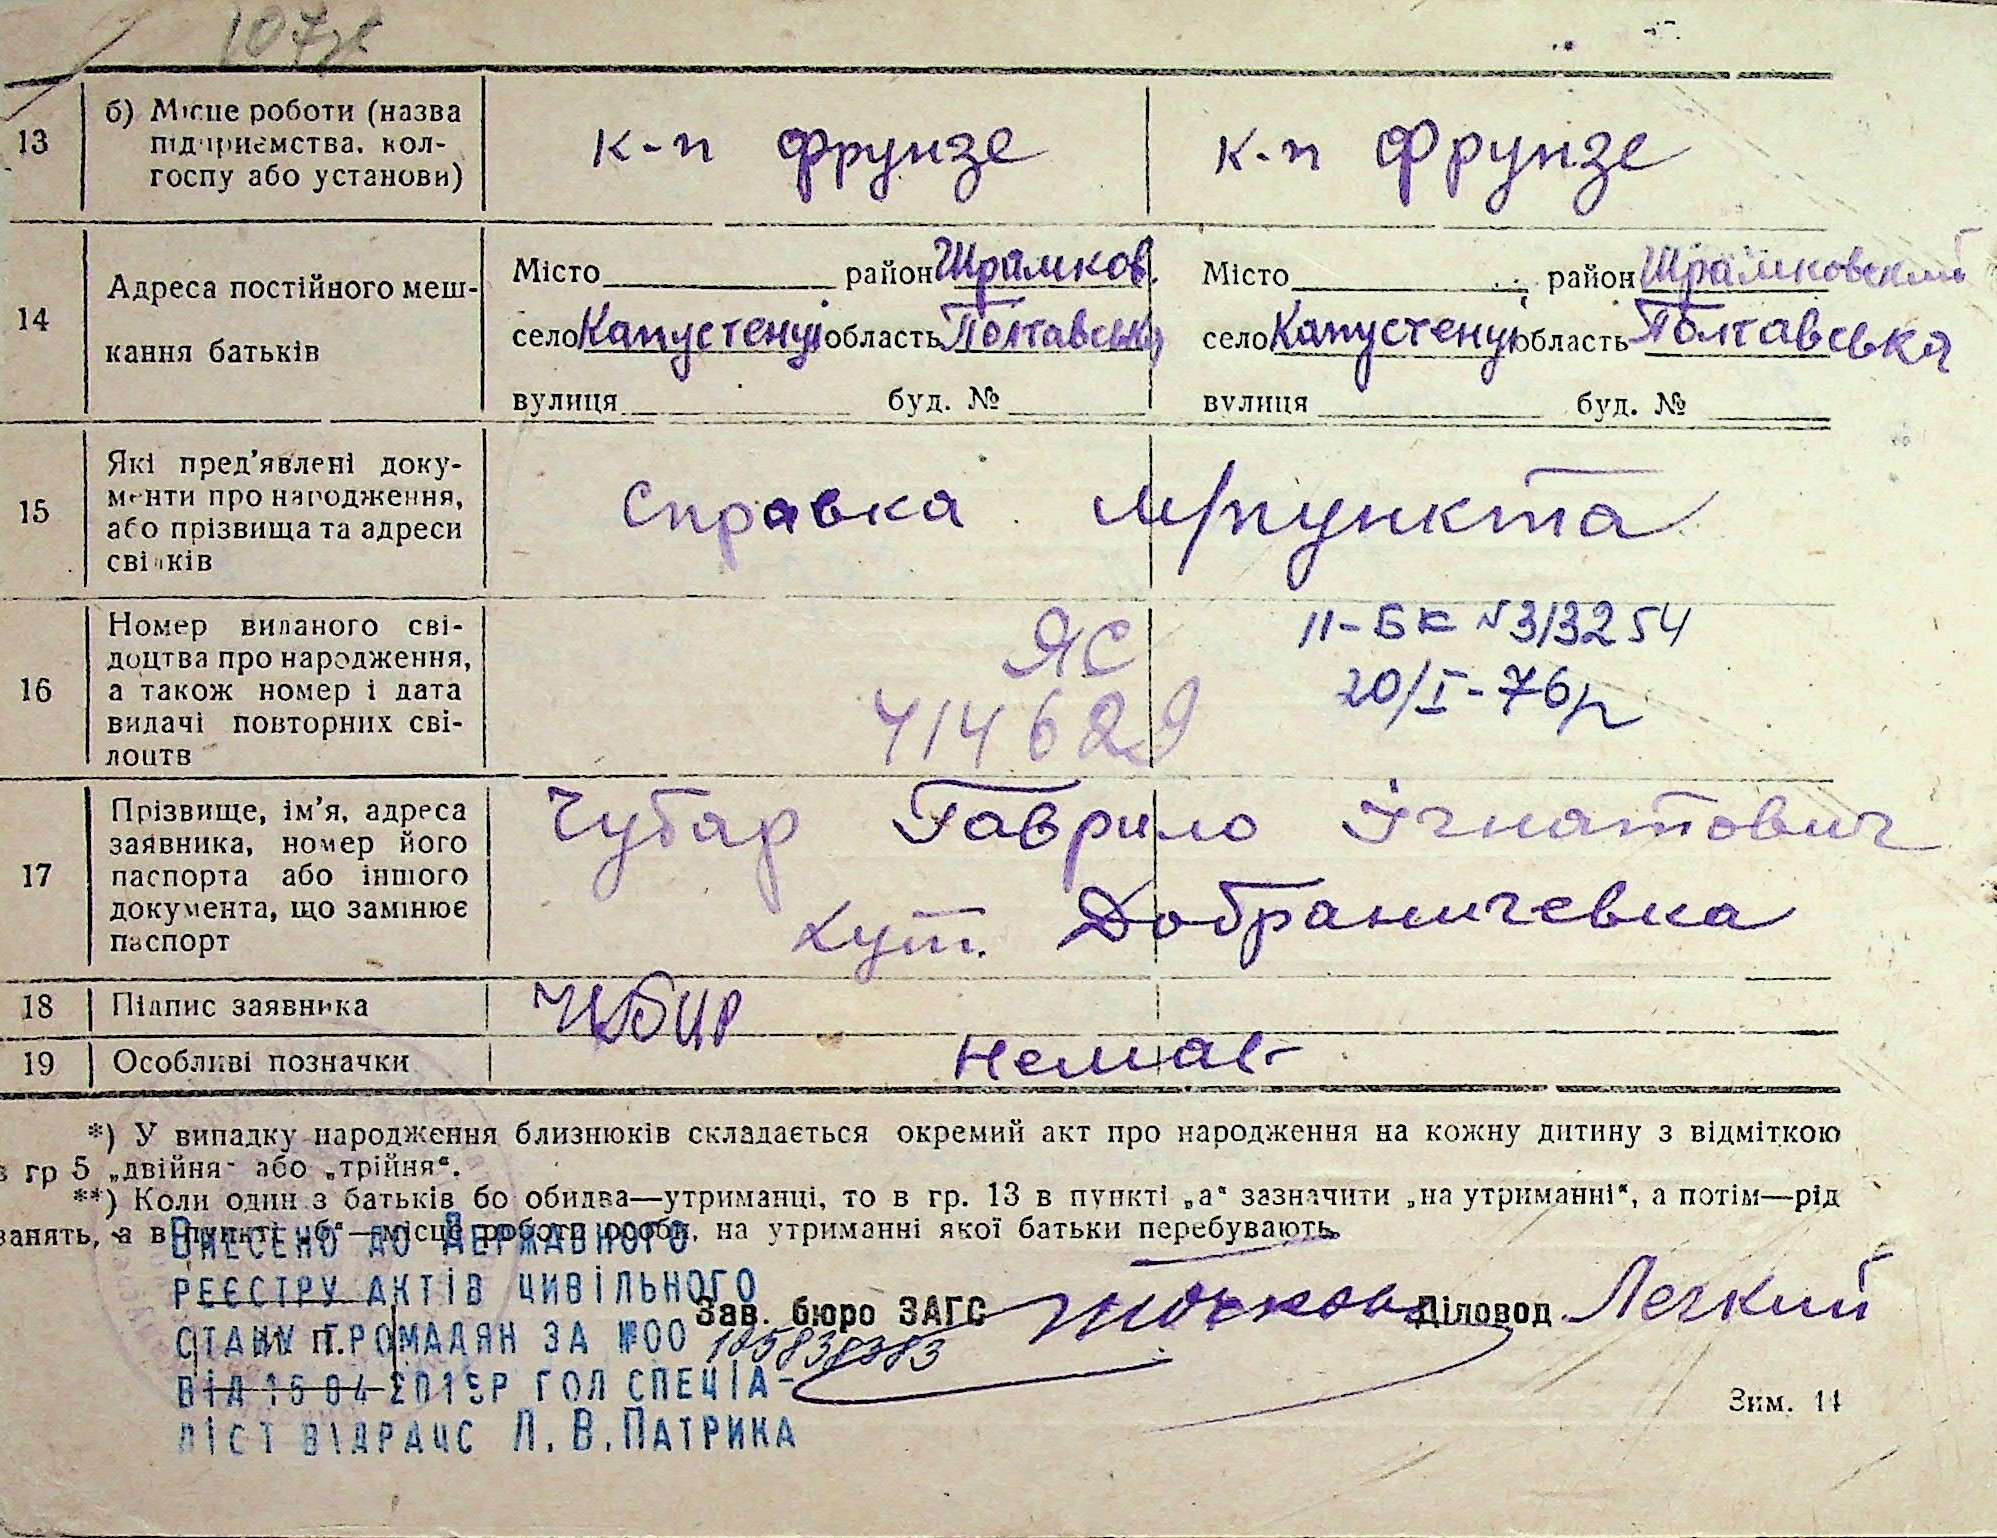 107
13
б) Місце роботи (назва
підприємства, кол-
госпу або установи)
к-п Фрунзе
к-п Фрунзе
14
Адреса постійного меш-
кання батьків
Місто район Шрамков.
село Капустенці область Полтавська
вулиця буд. №
Місто район Шрамковский
село Капустенці область Полтавська
вулиця буд. №
15
Які пред'явлені доку-
менти про народження,
або прізвища та адреси
свідків
Справка м/пункта
16
Номер виданого сві-
доцтва про народження,
а також номер і дата
видачі повторних сві-
доцтв
ЯС
414629
II-БК №313254
20/I-76р
17
Прізвище, ім'я, адреса
заявника, номер його
паспорта або іншого
документа, що замінює
паспорт
Чубар Гаврило Ігнатович
хут. Добраничевка
18
Підпис заявника
Чубар
19
Особливі позначки
немає
*) У випадку народження близнюків складається окремий акт про народження на кожну дитину з відміткою
в гр 5 „двійня" або „трійня".
**) Коли один з батьків бо обидва—утриманці, то в гр. 13 в пункті „а" зазначити „на утриманні", а потім—рід
занять, а в пункті „б"—місце роботи особи, на утриманні якої батьки перебувають.
Внесено до Державного
реєстру актів цивільного
стану громадян за №00
від 15 04 2015р гол спеціа-
ліст відрацс Л.В.Патрика
М П.
Зав. бюро ЗАГС
Діловод Легкий
Зим. 14